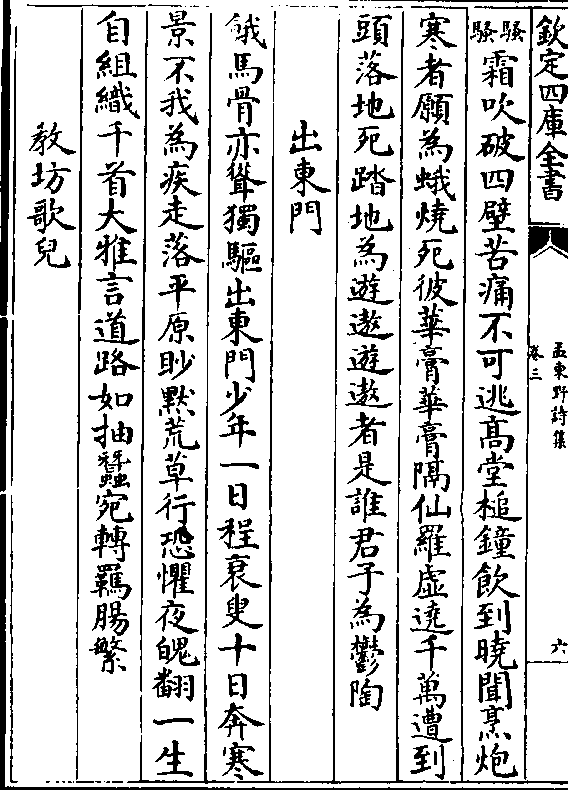 欽定四庫全書
孟東野詩集
卷三
六
騷騷霜吹破四壁苦痛不可逃髙堂槌鐘飲到曉聞烹炮
寒者願為蛾燒死彼華膏華膏隔仙羅虚遶千萬遭到
頭落地死踏地為遊遨遊遨者是誰君子為鬱陶
出東門
餓馬骨亦聳獨驅出東門少年一日程衰叟十日奔寒
景不我為疾走落平原眇黙荒草行恐懼夜魄翻一生
自組織千首大雅言道路如抽蠶宛轉羈腸繁
教坊歌兒